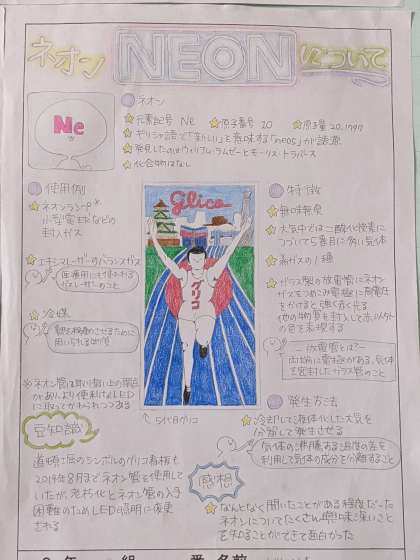 ネオン NEON について
Ne
ネオン
元素記号 Ne 原子番号 10 原子量 20.1797
ギリシャ語で「新しい」を意味する「neos」が語源
発見したのはウィリアム・ラムゼーとモーリス・トラバース
化合物はなし
使用例
ネオンランプ*
小型電球などの
封入ガス
エキシマレーザーのバランスガス
医療用にも使われる
ガスレーザーのこと
冷媒
用いられる物質
※ネオン管は
があり、より便利なLED
に取ってかわられつつある
glico
グリコ
5代目グリコ
特徴
無味無臭
大気中では二酸化炭素に
ついで5番目に多い気体
希ガスの1種
ガラス製の放電管にネオン
ガスをつめこみ電極に高電圧
をかけると強く赤く光る
他の物質を封入して赤以外
の色を表現する
ー放電管とは?ー
内端に電極がある、気体
を密封したガラス管のこと
発生方法
冷却して液体化した大気を
分留して発生させる
気体の沸騰する温度の差を
利用して気体の成分を分離すること
豆知識
道頓堀のシンボルのグリコ看板も
2014年8月までネオン管を使用して
いたが、老朽化とネオン管の入手
困難のためLEDの照明に変更
される
感想
なんとなく聞いたことがある程度だった
ネオンについてたくさん興味深いこと
を知ることができて面白かった
年 組 番 名前